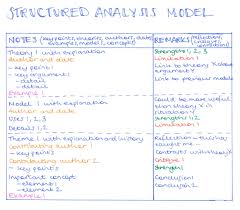 STRUCTURED ANALYSIS MODEL
NOTES (key points, theory, author, date, example, model, concept)
REMARKS (reflection,
Theory 1 with explanation
Author and date
- key point 1
- key argument
- detail 1
- detail 2
Example 1
Strengths 1, 2, 3
Limitation 1
Link to theory X whose argument
Link to previous model
Model 1 with explanation
Author and date
Uses 1, 2, 3
Details 1, 2
Could be more useful
Strength 1
Limitation 1
Theme 1 with explanation and history
Contributing author 1
- key points
Contributing author 2
- key points
Important concept
- element 1
- element 2
Example 1
Reflection - this has
taught me
Contrasts with theory X
Critique 1
Strength 1
Conclusion 1
Conclusion 2